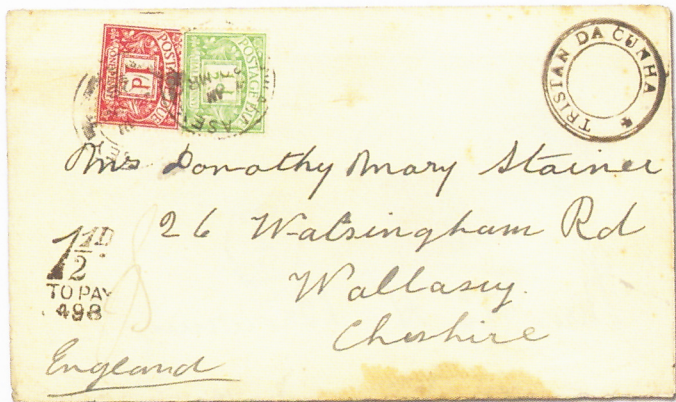 POSTAGE DUE
POSTAGE DUE
TRISTAN DA CUNHA
Mrs Dorothy Mary Stainer
26 Walsingham Rd
Wallasey.
Cheshire
England
1½D.
TO PAY
498